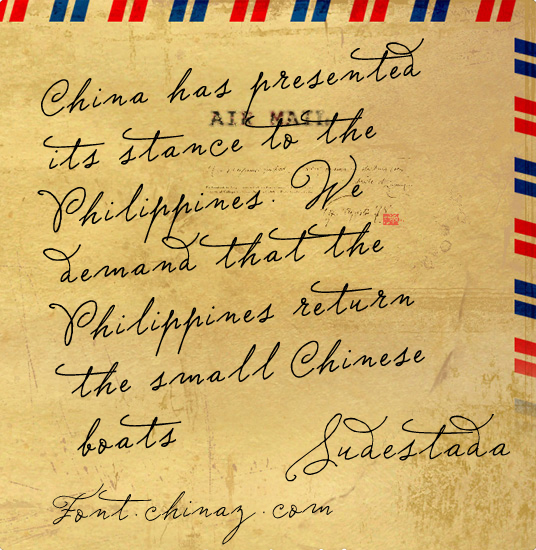 China has presented
AIR MAIL
its stance to the
Philippines. We
demand that the
Philippines return
the small Chinese
boats
Sudestada
Font.chinaz.com